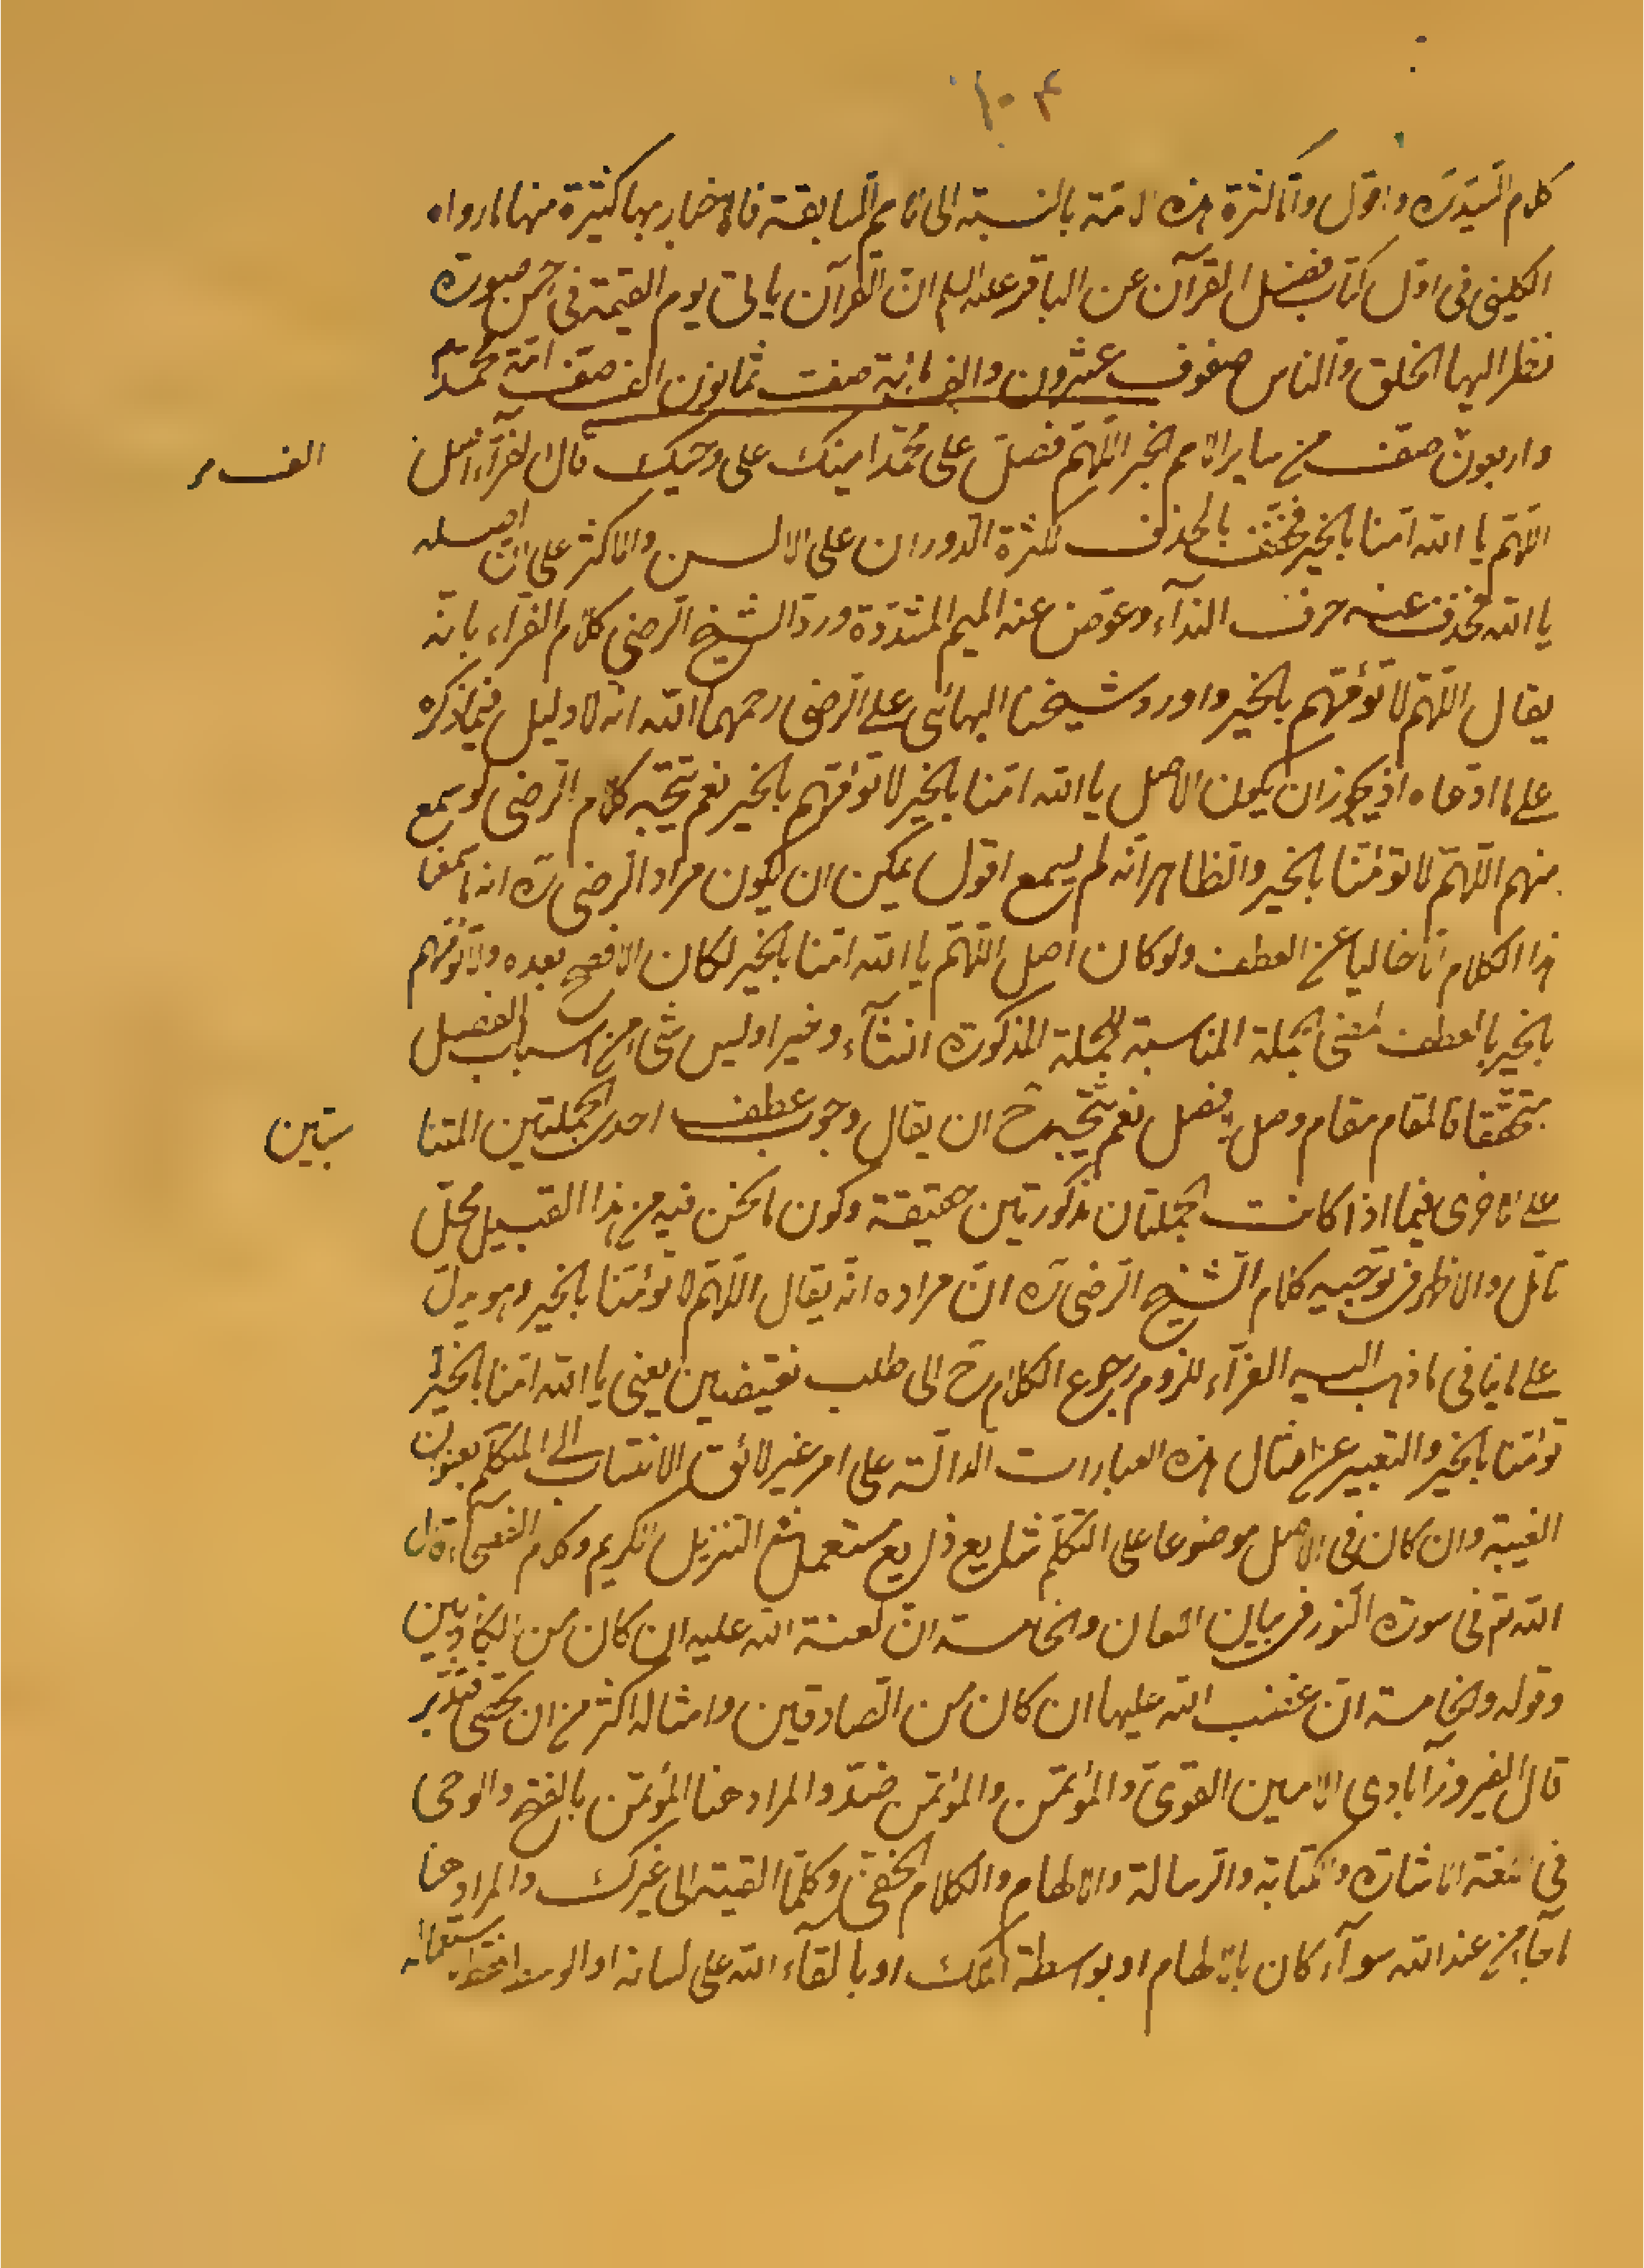 ١٠٤
كلام السيد ره واقول واما كثرة هذه الامة بالنسبة الى الامم السابقة فالاخبار بها كثيرة منها ما رواه
الكليني في اول كتاب فضل القرآن عن الباقر عليه السلم ان القرآن ياتي يوم القيمة في احسن صورة
نظر اليها الخلق والناس صفوف عشرون والف مائة صف ثمانون الف صف امة محمد
واربعون صف من ساير الامم الخبر اللهم فصل على محمد امينك على وحيك قال الفراء اصل
الف
اللهم يا الله امنا بالخير فخفف بالحذف لكثرة الدوران على الالسن والاكثر على ان اصله
يا الله فحذف عنه حرف الندآء وعوض عنه الميم المشددة ورد الشيخ الرضي كلام الفراء بانه
يقال اللهم لا تؤمهم بالخير واورد شيخنا البهائي على الرضي رحمهما الله انه لا دليل فيما ذكره
على ما ادعاه اذ يجوز ان يكون الاصل يا الله امنا بالخير لا تؤمهم بالخير نعم يتجه كلام الرضي لو سمع
منهم اللهم لا تؤمنا بالخير والظاهر انه لم يسمع اقول يمكن ان يكون مراد الرضي ره انه ما سمعنا
هذا الكلام الا خاليا عن العطف ولو كان اصل اللهم يا الله امنا بالخير لكان الافصح بعده ولا تؤمهم
بالخير بالعطف لمضي الجملة المناسبة للجملة المذكورة انشآء وخبرا وليس شئ من اسباب الفصل
متحققا فالمقام مقام وصل لا فصل نعم يتجه ح ان يقال وجوب عطف احدى الجملتين المتنا
سبتين
على الاخرى فيما اذا كانت الجملتان مذكورتين حقيقة وكون ما نحن فيه من هذا القبيل محل
تامل والاظهر في توجيه كلام الشيخ الرضي ره ان مراده انه يقال اللهم لا تؤمنا بالخير وهو يدل
على ما ينافي ما ذهب اليه الفرآء للزوم رجوع الكلام ح الى طلب نقيضين يعني يا الله امنا بالخير لا
تؤمنا بالخير والتعبير عن امثال هذه العبارات الدالة على امر غير لائق الانتساب الى المتكلم بعنوان
الغيبة وان كان في الاصل موضوعا على التكلم شايع ذايع مستعمل في التنزيل الكريم وكلام الفصحآء قال
الله تع في سورة النور في بيان اللعان والخامسة ان لعنة الله عليه ان كان من الكاذبين
وقوله والخامسة ان غضب الله عليها ان كان من الصادقين وامثاله اكثر من ان تحصى فتدبر
قال الفيروزآبادي الامين القوي والمؤتمن والمؤتمن ضد والمراد هنا المؤتمن بالفتح والوحي
في اللغة الاشارة والكتابة والرسالة والالهام والكلام الخفي وكلما القيته الى غيرك والمراد هنا
ما جآء من عند الله سوآء كان بالالهام او بواسطة الملك او بالقآء الله على لسانه او